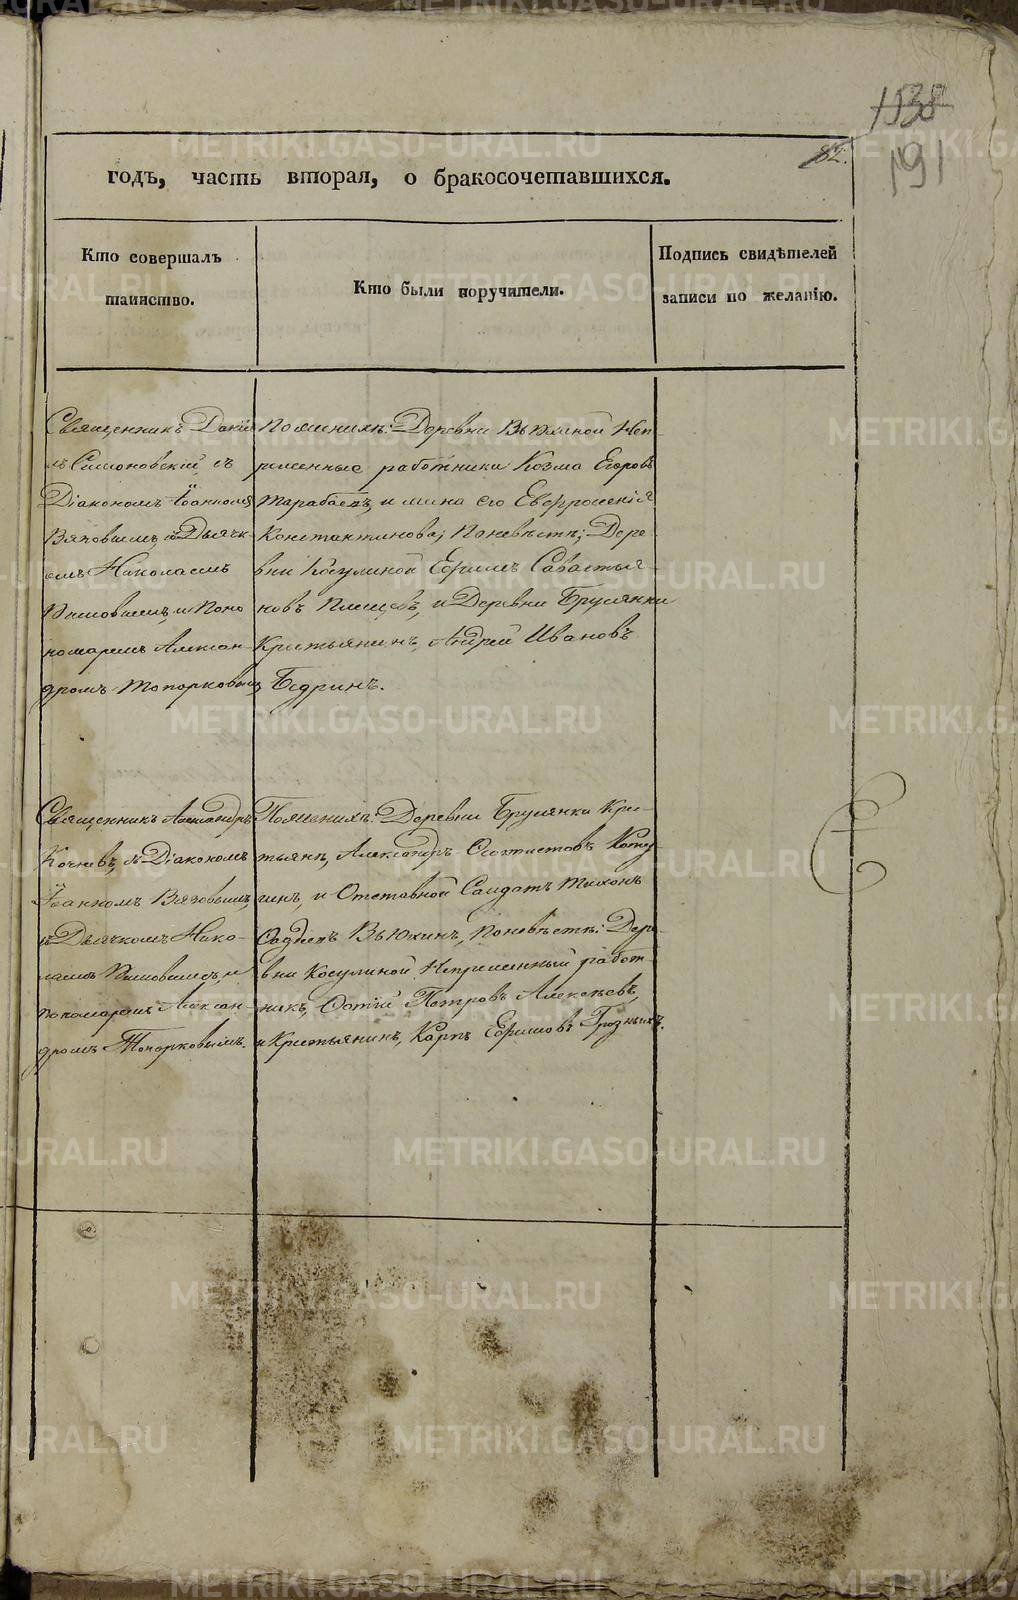 1538
82.
191
годъ, часть вторая, о бракосочетавшихся.
Кто совершалъ
таинство.
Кто были поручители.
Подпись свидѣтелей
записи по желанію.
Священникъ Даніи
лъ Симоновскій, съ
Діакономъ Іоанномъ
Вяховымъ, и Дьячк-
омъ Николаемъ
и Поно
номаремъ Алексан-
дромъ Топорковымъ
По женихѣ: Деревни Вьюхиной Неп-
ремѣнные работники Козма Егоровъ
Тарабаевъ, и жена его Евфросинія
Константинова; По невѣстѣ; Дере-
вни Косулиной Ефимъ Савастья-
новъ и Деревни Брусянки
Крестьянинъ, Андрей Ивановъ
Бедринъ.
Священникъ Александръ
Кочневъ, съ Діакономъ
Іоанномъ Вяховымъ,
съ Дьячкомъ Нико-
лаемъ и
пономаремъ Алексан-
дромъ Топорковымъ.
По женихѣ: Деревни Брусянки Кре-
стьянъ, Александръ
и Отставной Салдатъ Тихонъ
Вьюхинъ, По невѣстѣ: Дере-
вни Косулиной Непремѣнный работ-
никъ, Фотій Петровъ Алексѣевъ,
и Крестьянинъ, Карпъ Ефимовъ Грозныхъ.
METRIKI.GASO-URAL.RU